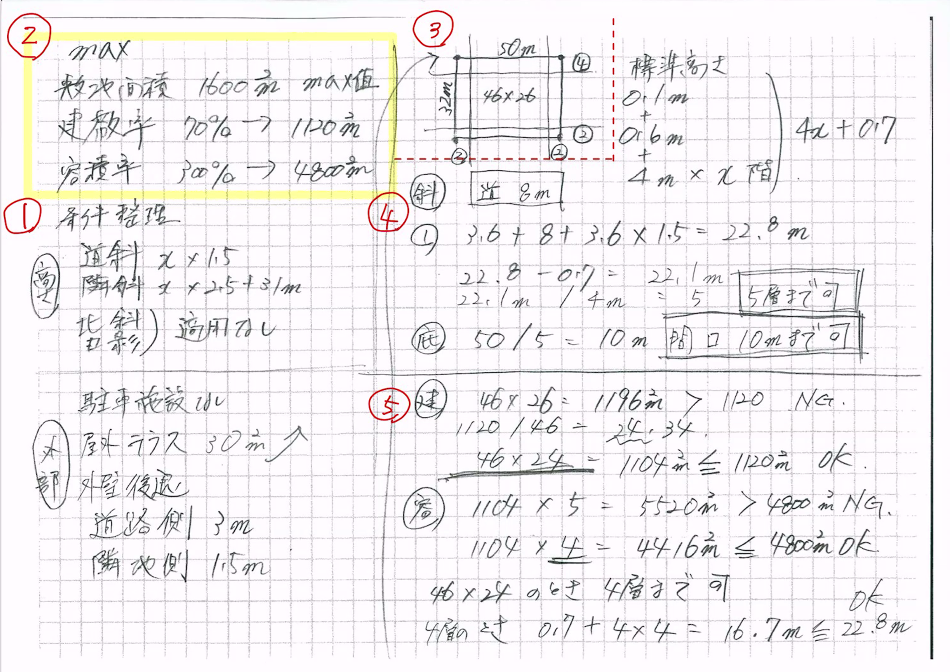 ②
max
敷地面積 1600㎡ max値
建蔽率 70% → 1120㎡
容積率 300% → 4800㎡
①
条件整理
道斜 x × 1.5
隣斜 x × 2.5 + 31m
北斜
日影) 適用なし
駐車施設なし
外部
屋外テラス 30㎡
外壁後退
道路側 3m
隣地側 1.5m
③
50m
32m
46×26
④
②
②
標準高さ
0.1m
+
0.6m
+
4m × x階
4x + 0.7
④
斜
道 8m
①
3.6 + 8 + 3.6 × 1.5 = 22.8m
22.8 - 0.7 = 22.1m
22.1m / 4m = 5 5層まで可
庇 50/5 = 10m 間口 10mまで可
⑤
建 46×26 = 1196㎡ > 1120 NG.
1120/46 = 24.34
46×24 = 1104㎡ ≦ 1120㎡ OK
容 1104 × 5 = 5520㎡ > 4800㎡ NG.
1104 × 4 = 4416㎡ ≦ 4800㎡ OK
46×24 のとき 4層まで可
4層のとき 0.7 + 4×4 = 16.7m ≦ 22.8m OK